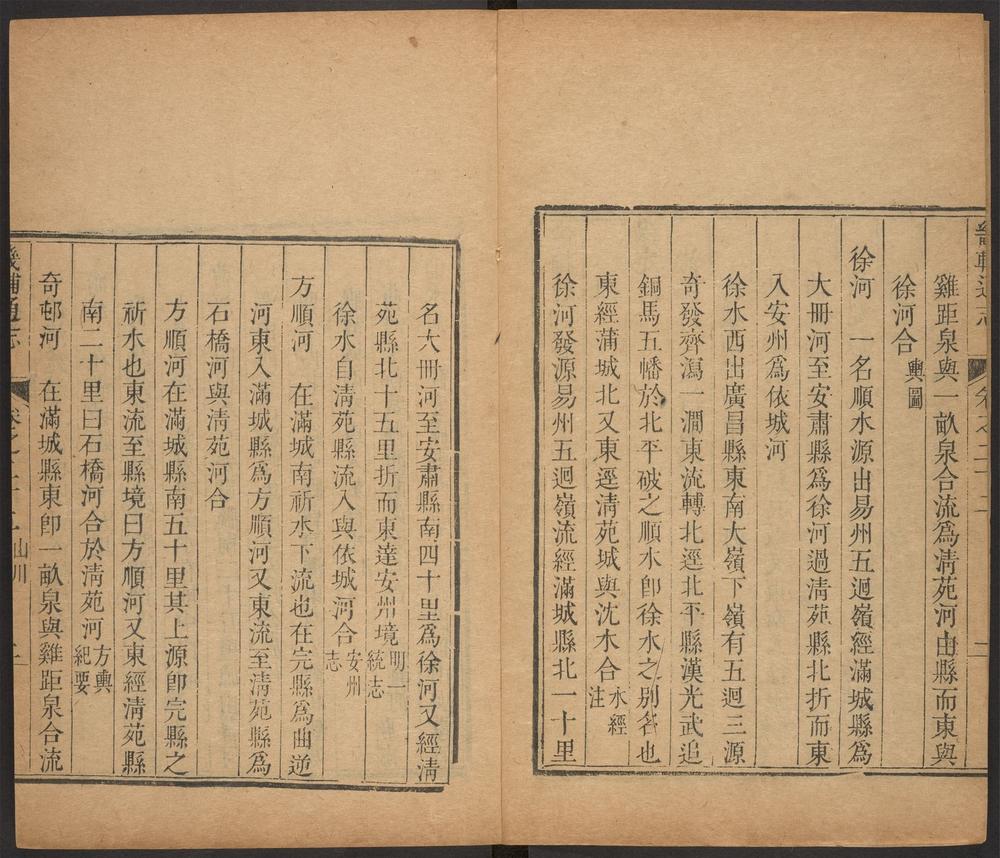 雞距泉與一畝泉合流爲淸苑河由縣而東與
徐河合輿圖
徐河 一名順水源出易州五迴嶺經滿城縣爲
大冊河至安肅縣爲徐河過淸苑縣北折而東
入安州爲依城河
徐水西出廣昌縣東南大嶺下嶺有五迴三源
奇發齊瀉一澗東流轉北逕北平縣漢光武追
銅馬五幡於北平破之順水卽徐水之別名也
東經蒲城北又東逕淸苑城與沈水合水經注
徐河發源易州五迴嶺流經滿城縣北一十里
名大冊河至安肅縣南四十里爲徐河又經淸
苑縣北十五里折而東達安州境明一統志
徐水自淸苑縣流入與依城河合安州志
方順河 在滿城南祈水下流也在完縣爲曲逆
河東入滿城縣爲方順河又東流至淸苑縣爲
石橋河與淸苑河合
方順河在滿城縣南五十里其上源卽完縣之
祈水也東流至縣境曰方順河又東經淸苑縣
南二十里曰石橋河合於淸苑河方輿紀要
奇邨河 在滿城縣東卽一畝泉與雞距泉合流
畿輔通志 卷之二十二 山川